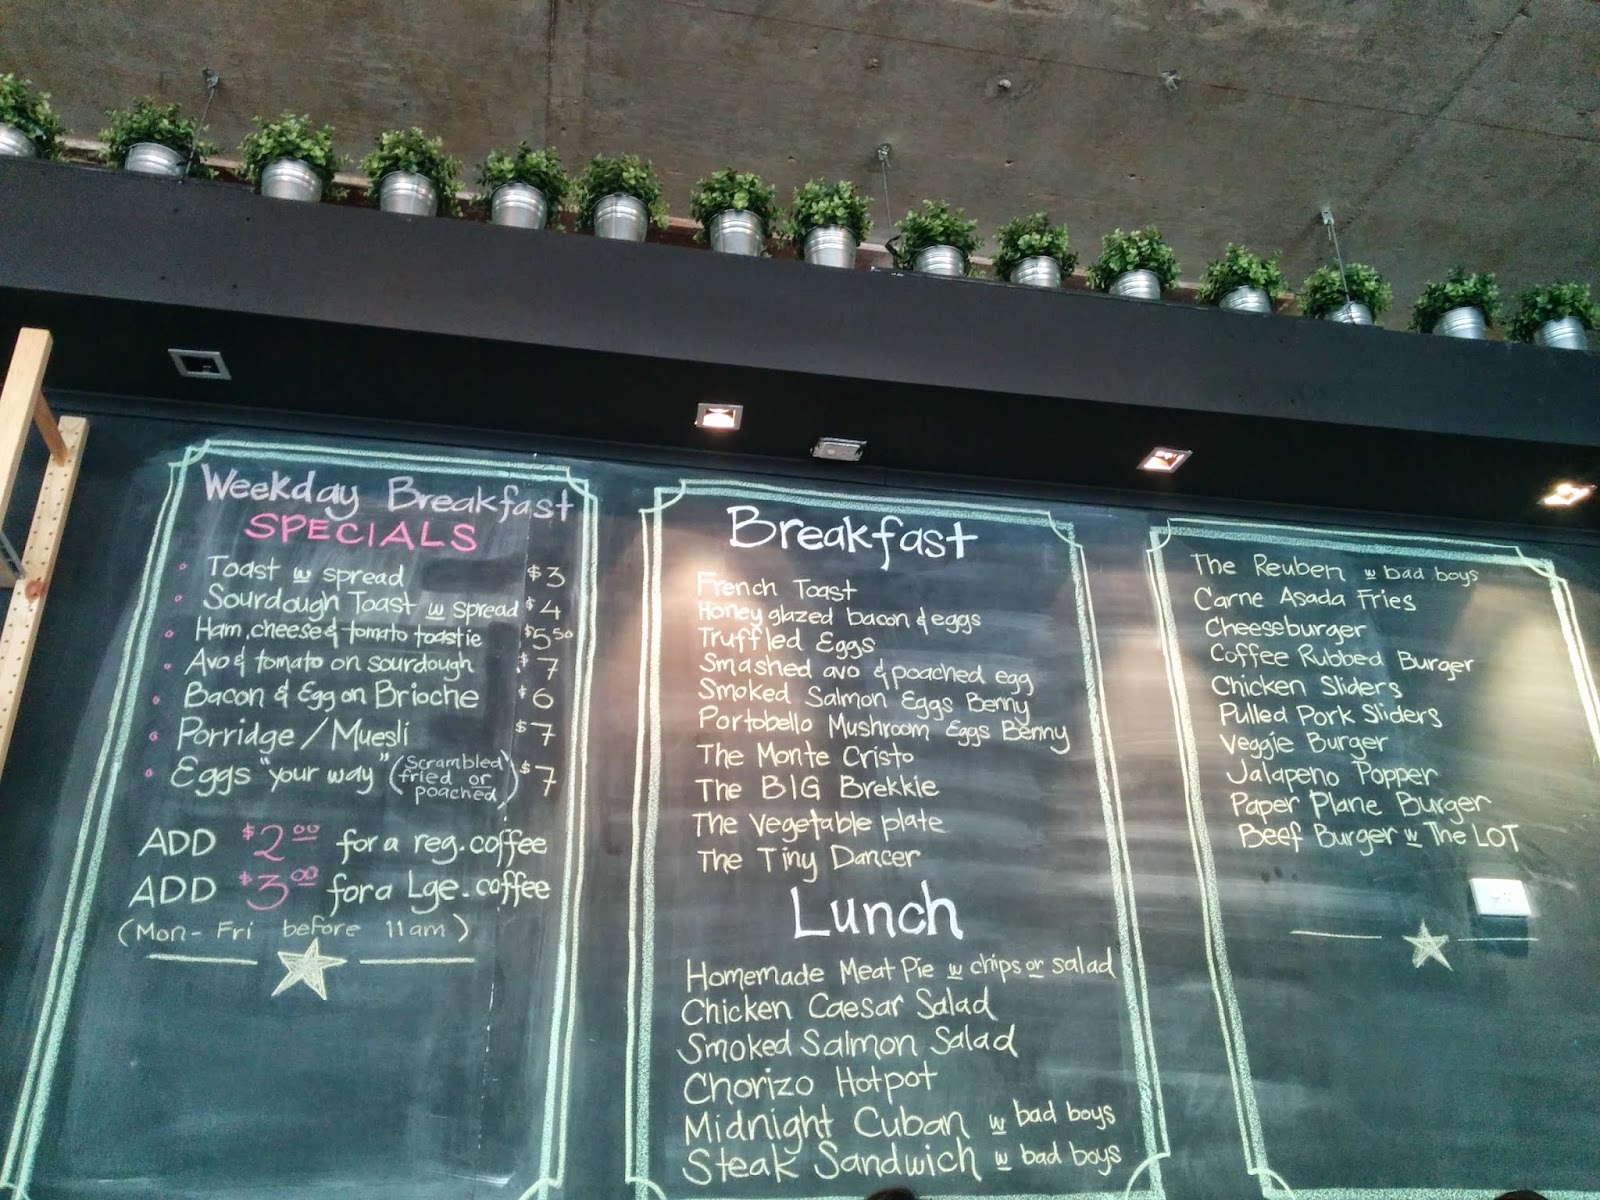 Weekday Breakfast
SPECIALS
Toast w spread $3
Sourdough Toast w spread $4
Ham, cheese & tomato toastie $5.50
Avo & tomato on sourdough $7
Bacon & Egg on Brioche $6
Porridge / Muesli $7
Eggs "your way" (scrambled fried or poached) $7
ADD $2.00 for a reg. coffee
ADD $3.00 for a Lge. coffee
(Mon - Fri before 11am)
Breakfast
French Toast
Honey glazed bacon & eggs
Truffled Eggs
Smashed avo & poached egg
Smoked Salmon Eggs Benny
Portobello Mushroom Eggs Benny
The Monte Cristo
The BIG Brekkie
The Vegetable plate
The Tiny Dancer
Lunch
Homemade Meat Pie w chips or salad
Chicken Caesar Salad
Smoked Salmon Salad
Chorizo Hotpot
Midnight Cuban w bad boys
Steak Sandwich w bad boys
The Reuben w bad boys
Carne Asada Fries
Cheeseburger
Coffee Rubbed Burger
Chicken Sliders
Pulled Pork Sliders
Veggie Burger
Jalapeno Popper
Paper Plane Burger
Beef Burger w The LOT